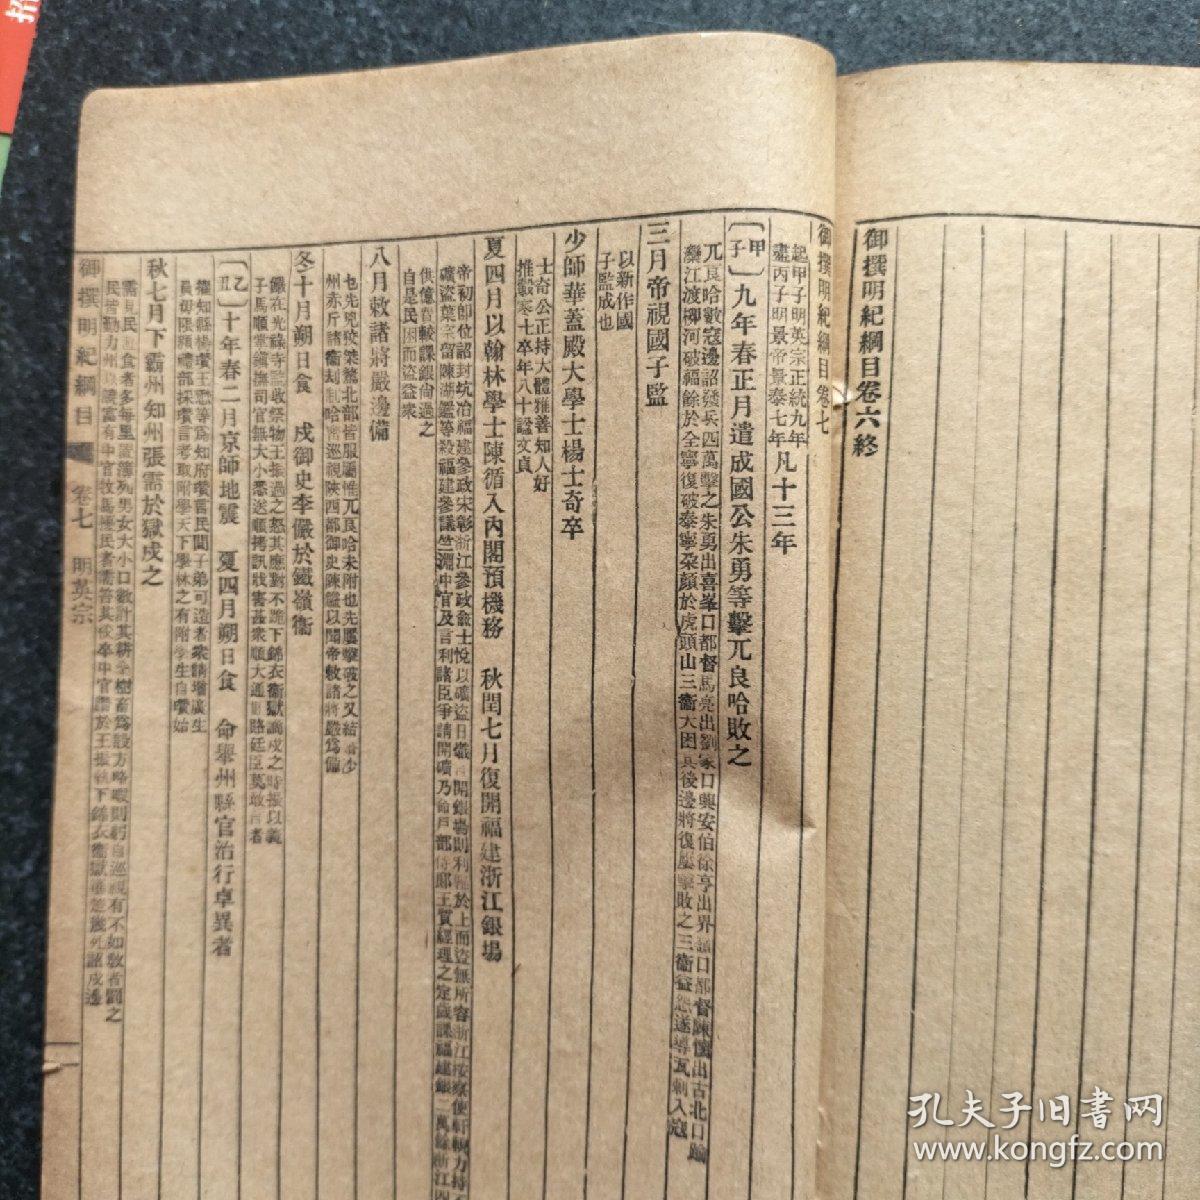 御撰明紀綱目卷六終
御撰明紀綱目卷七
起甲子明英宗正統九年
盡丙子明景帝景泰七年凡十三年
〔甲子〕九年春正月遣成國公朱勇等擊兀良哈敗之
兀良哈數寇邊詔發兵四萬擊之朱勇出喜峯口都督馬亮出劉家口興安伯徐亨出界嶺口都督陳懷出古北口踰
灤江渡柳河破福餘於全寧復破泰寧朶顏於虎頭山三衞大困其後邊將復屢擊敗之三衞益怨遂導瓦剌入寇
三月帝視國子監
以新作國
子監成也
少師華蓋殿大學士楊士奇卒
士奇公正持大體雅善知人好
推轂寒士卒年八十諡文貞
夏四月以翰林學士陳循入內閣預機務　秋閏七月復開福建浙江銀場
帝初卽位詔封坑冶福建參政宋彰浙江參政俞士悅以礦盜日熾言開銀場則利歸於上而盜無所容浙江按察使軒輗力持不
礦盜葉宗留陳湖鑑等殺福建參議竺淵中官及言利諸臣爭請開礦乃命戶部侍郞王質經理之定歲課福建銀二萬餘浙江四
供億費較課銀尙過之
自是民困而盜益衆
八月敕諸將嚴邊備
也先兇狡桀驁北部皆服屬惟兀良哈未附也先屢擊破之又結
州赤斤諸衞刦制哈密巡視陝西都御史陳鎰以聞帝敕諸將嚴爲備
冬十月朔日食　戍御史李儼於鐵嶺衞
儼在光祿寺監收祭物王振過之怒其應對不跪下錦衣衞獄謫戍之時振以義
子馬順掌鎭撫司官無大小悉送順拷訊戕害甚衆順大通賄賂廷臣莫敢言者
〔乙丑〕十年春二月京師地震　夏四月朔日食　命舉州縣官治行卓異者
擢知縣楊瓚王懋等爲知府瓚言民閒子弟可造者衆請增廣生
員毋限額禮部採瓚言考取附學天下學校之有附學生自瓚始
秋七月下霸州知州張需於獄戍之
需見民游食者多每里置簿列男女大小口數計其耕桑樹畜爲設方略暇則躬自巡視有不如敎者罰之
民皆勤力州以饒富有中官牧馬擾民者需笞其校卒中官譖於王振執下錦衣衞獄箠楚幾死謫戍邊
御撰明紀綱目
卷七　明英宗
孔夫子旧書网
www.kongfz.com